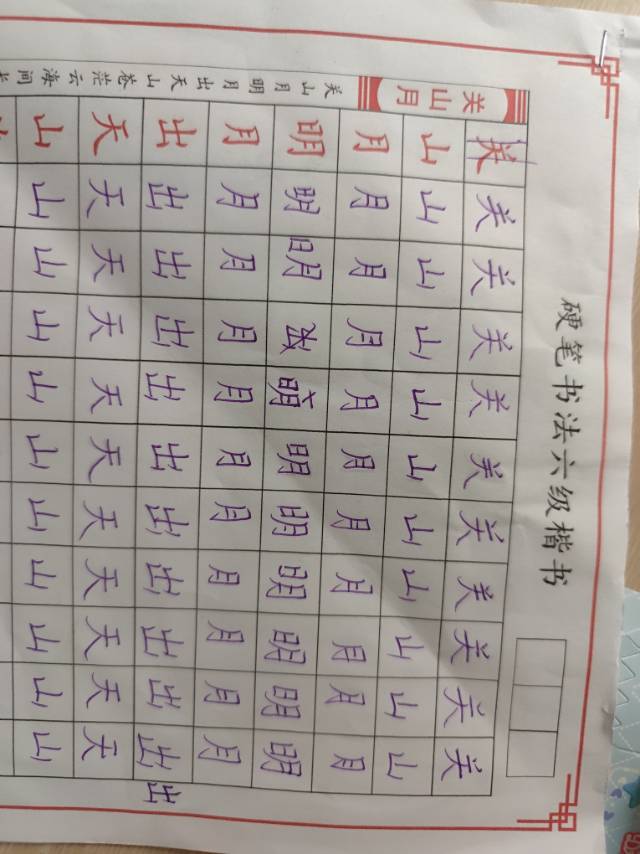 硬笔书法六级楷书
关山月
关山月明月出天山苍茫云海间
关关关关关关关关关关关
山山山山山山山山山山山
月月月月月月月月月月月
明明明萌明明明明明明
月月月月月月月月月月月
出出出出出出出出出出出出
天天天天天天天天天天天
山山山山山山山山山山山